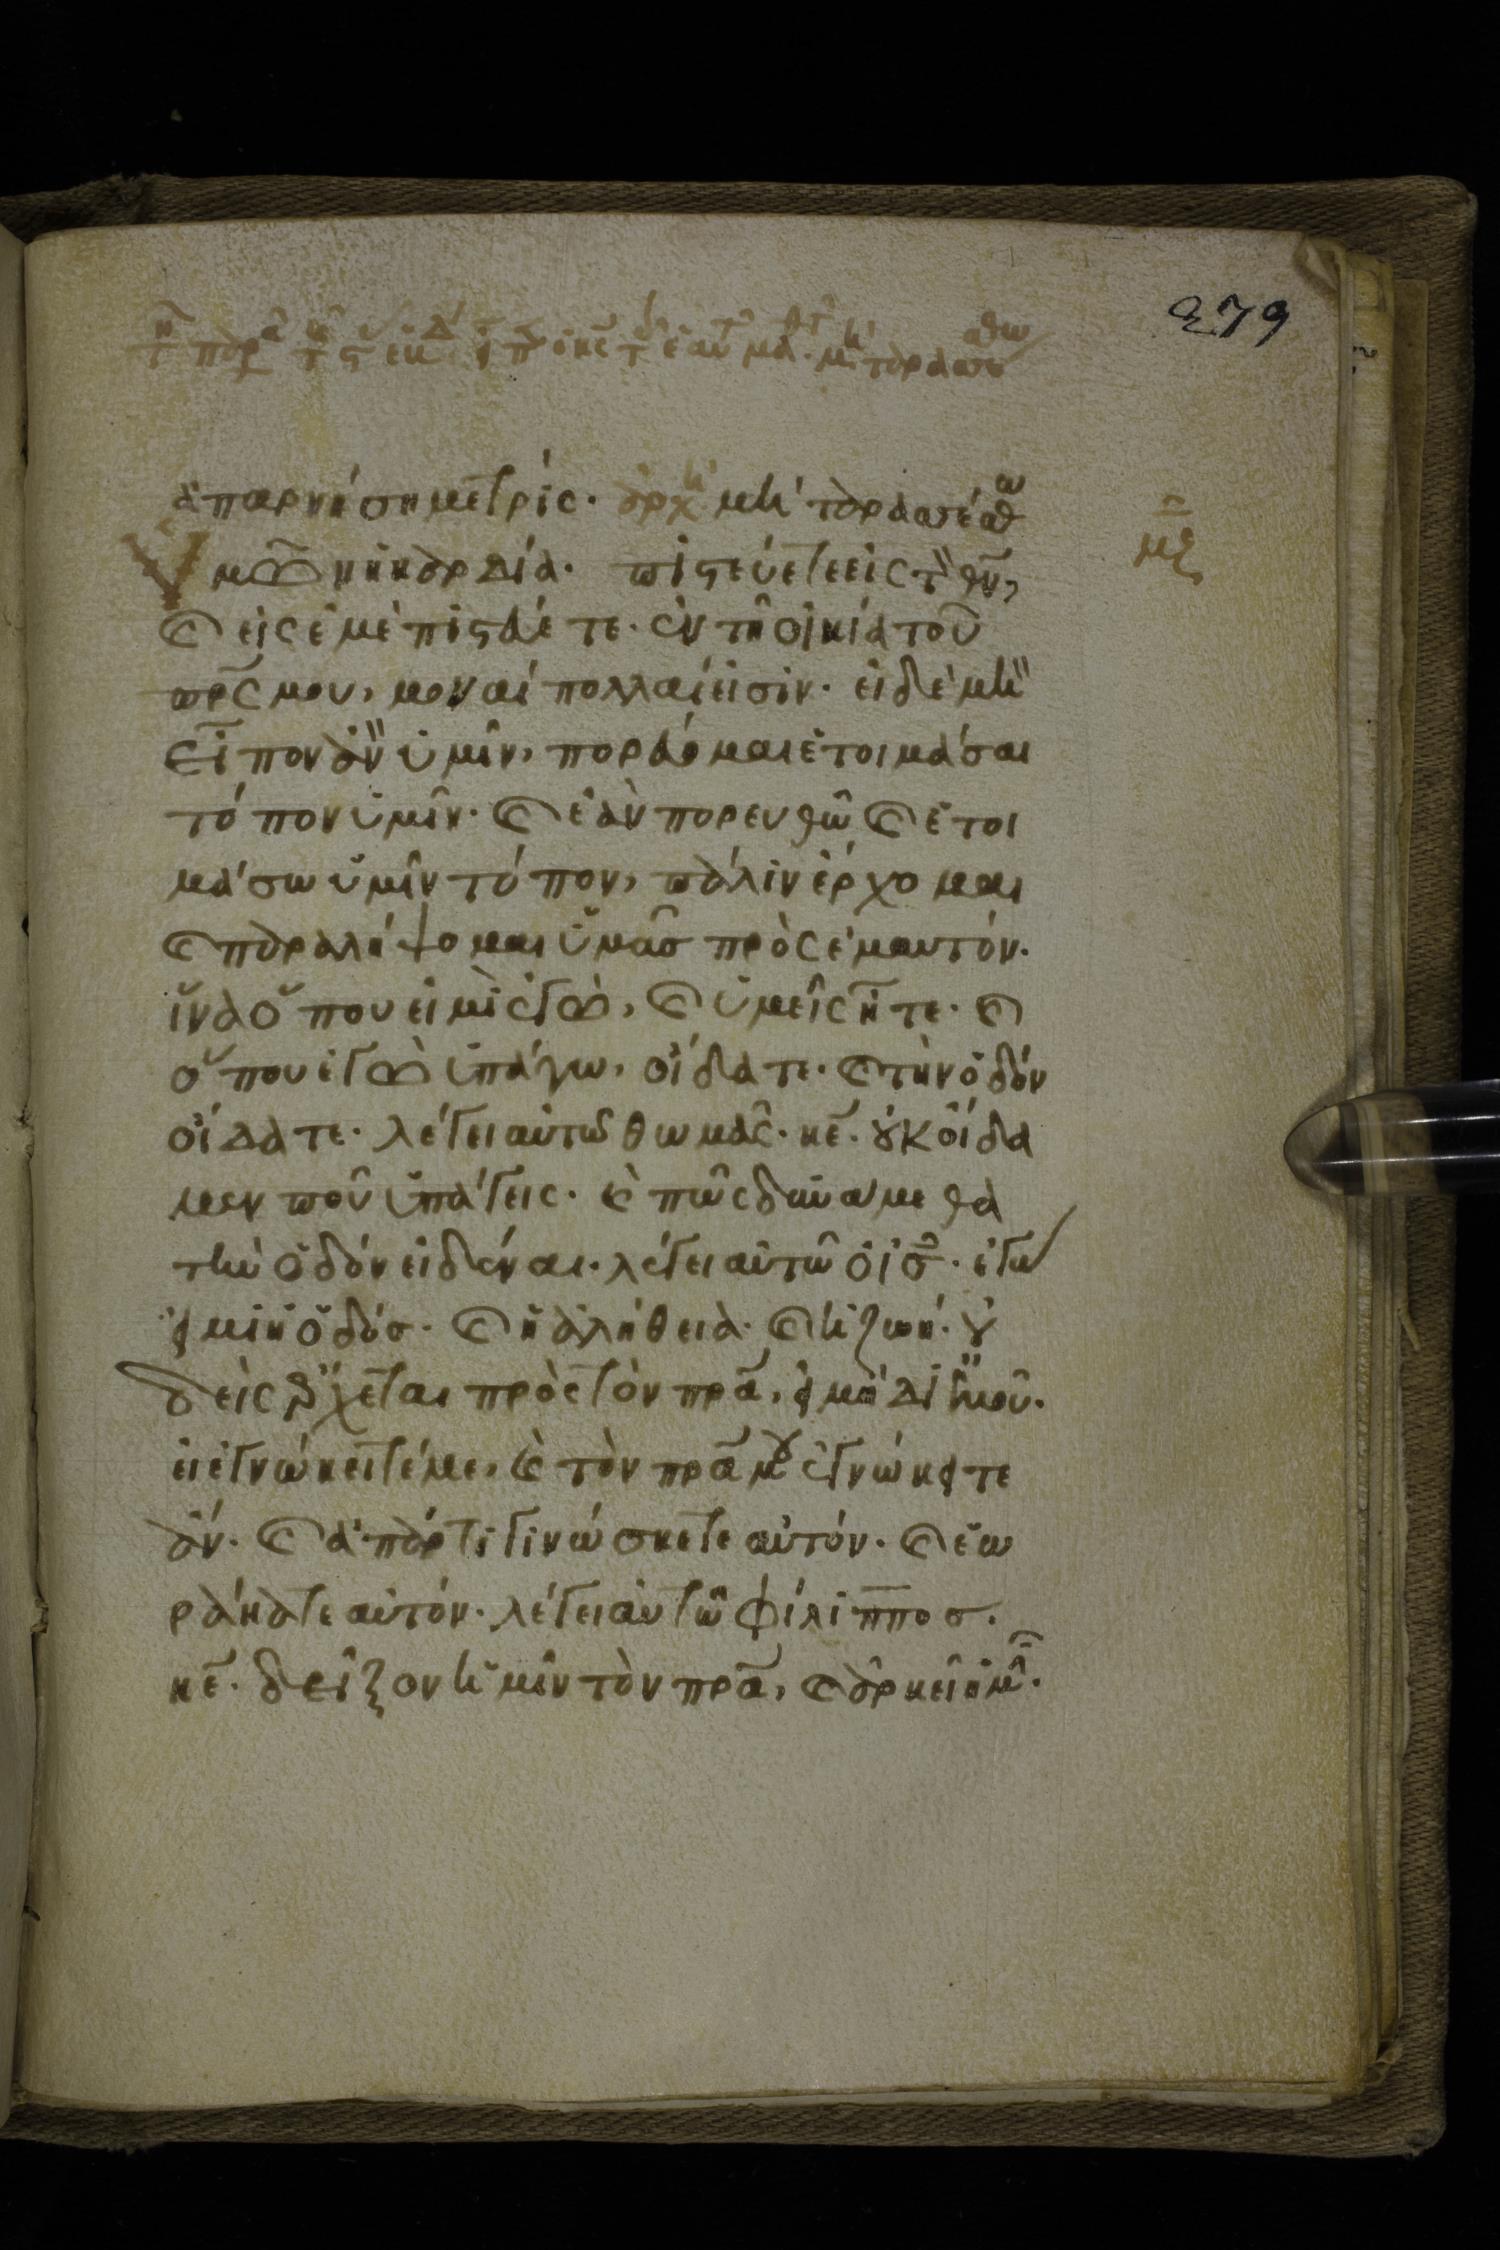 279
ἀπαρνήσῃ με τρίς. ἀρχ μὴ ταρασσέσθω
ὑμῶν ἡ καρδία. πιστεύετε εἰς τὸν θν,
καὶ εἰς ἐμὲ πιστεύετε. ἐν τῇ οἰκία τοῦ
πρς μου, μοναὶ πολλαί εἰσιν. εἰ δὲ μὴ
εἶπον ἂν ὑμῖν, πορεύομαι ἑτοιμάσαι
τόπον ὑμῖν. καὶ ἐὰν πορευθῶ καὶ ἑτοι
μάσω ὑμῖν τόπον, πάλιν ἔρχομαι
καὶ παραλήψομαι ὑμᾶς πρὸς ἐμαυτόν.
ἵνα ὅπου εἰμὶ ἐγὼ, καὶ ὑμεῖς ἦτε. καὶ
ὅπου ἐγὼ ὑπάγω, οἴδατε. καὶ τὴν ὁδόν
οἴδατε. λέγει αὐτῶ θωμᾶς. κε. οὐκ οἴδα
μεν ποῦ ὑπάγεις. καὶ πῶς δυνάμεθα
τὴν ὁδόν εἰδέναι. λέγει αὐτῶ ὁ ις. ἐγώ
εἰμι ἡ ὁδός. καὶ ἡ ἀλήθεια. καὶ ἡ ζωή. οὐ
δεὶς ἔρχεται πρὸς τὸν πρα, εἰ μὴ δι' ἐμοῦ.
εἰ ἐγνώκειτέ με, καὶ τὸν πρα μου ἐγνώκειτε
ἄν. καὶ ἀπάρτι γινώσκετε αὐτόν. καὶ ἑω
ράκατε αὐτόν. λέγει αὐτῶ φίλιππος.
κε. δεῖξον ἡμῖν τὸν πρα, καὶ ἀρκεῖ ἡμῖν.